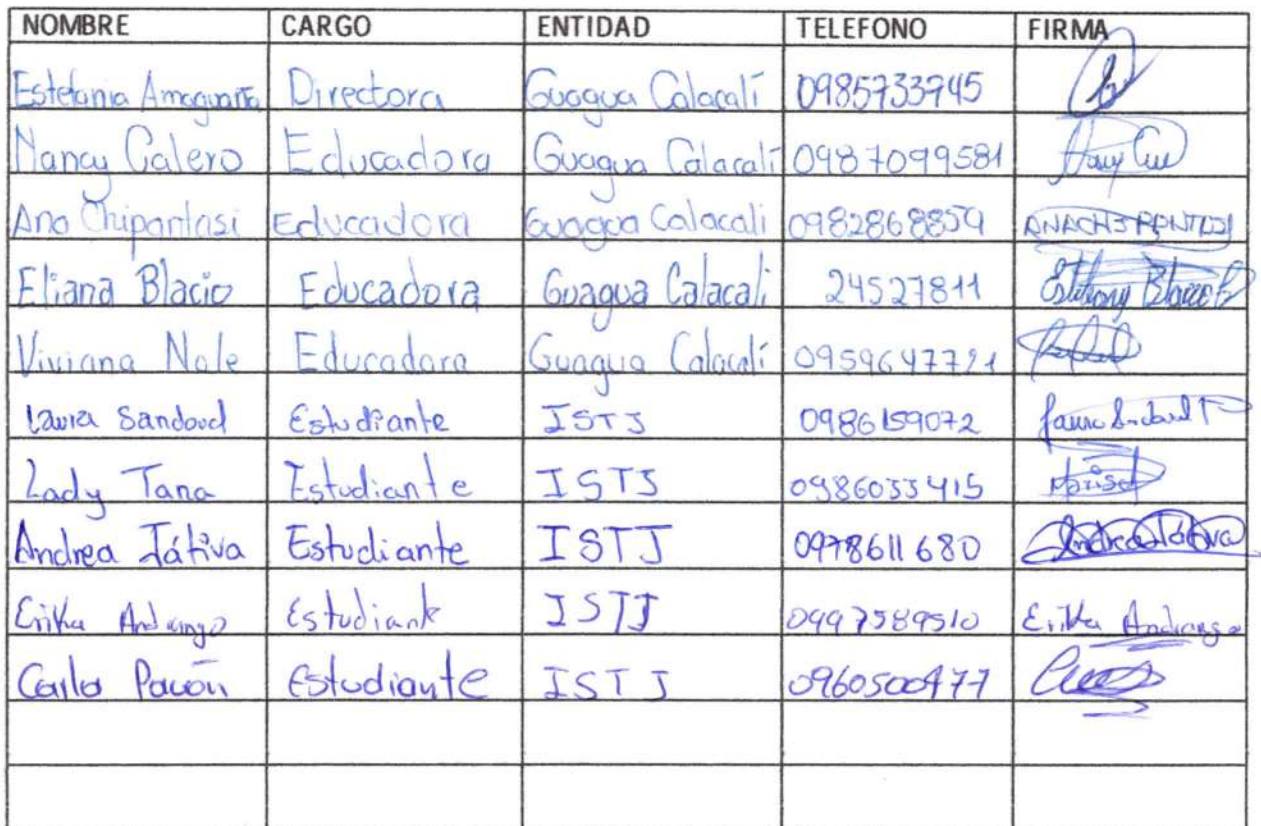 NOMBRE CARGO ENTIDAD TELEFONO FIRMA
Estefania Amaguaña Directora Guagua Calacalí 0985733745
Nancy Calero Educadora Guagua Calacalí 0987099581
Ana Chipantasi Educadora Guagua Calacali 0982868859
Eliana Blacio Educadora Guagua Calacali 24527811
Viviana Nole Educadora Guagua Calacalí 0959647721
Laura Sandoval Estudiante ISTJ 0986159072
Lady Tana Estudiante ISTJ 0986033415 Marisol
Andrea Játiva Estudiante ISTJ 0978611680 Andrea Játiva
Erika Andrango Estudiante ISTJ 0997589510 Erika Andrango
Carlos Pavón Estudiante ISTJ 0960500477